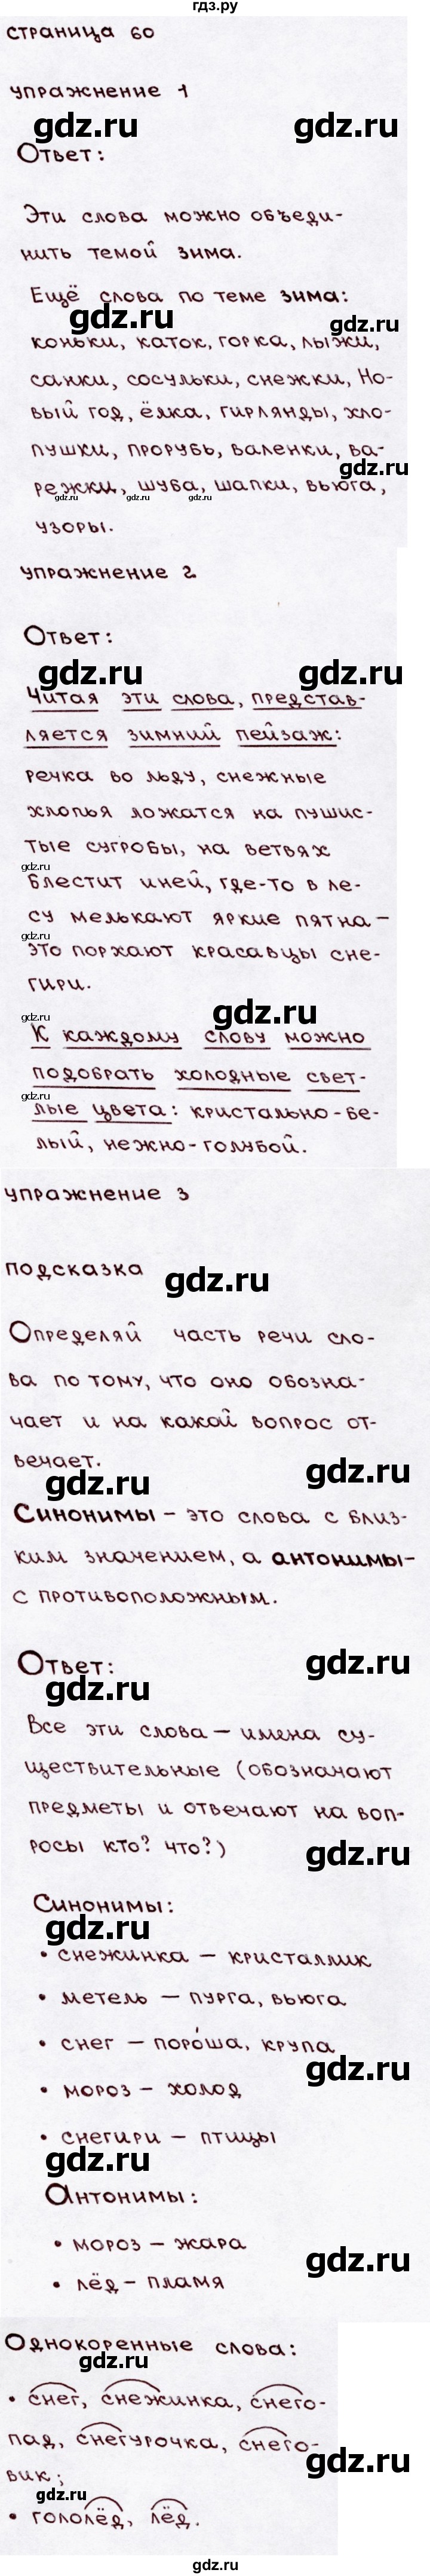 гдз.ру
страница 60
упражнение 1
gdz.ru gdz.ru
Ответ:
Эти слова можно объеди-
нить темой зима.
Ещё слова по теме зима:
gdz.ru gdz.ru
коньки, каток, горка, лыжи,
санки, сосульки, снежки, Но-
вый год, ёлка, гирлянды, хло-
пушки, прорубь, валенки, ва-
gdz.ru
режки, шуба, шапки, вьюга,
gdz.ru gdz.ru gdz.ru
узоры.
упражнение 2
Ответ:
gdz.ru gdz.ru
Читая эти слова, представ-
ляется зимний пейзаж:
речка во льду, снежные
хлопья ложатся на пушис-
тые сугробы, на ветвях
gdz.ru
блестит иней, где-то в ле-
су мелькают яркие пятна -
gdz.ru
это порхают красавцы сне-
гири.
gdz.ru gdz.ru
К каждому слову можно
подобрать холодные свет-
gdz.ru
лые цвета: кристально-бе-
лый, нежно-голубой.
упражнение 3
подсказка
gdz.ru
Определяй часть речи сло-
ва по тому, что оно обозна-
чает и на какой вопрос от-
вечает.
gdz.ru gdz.ru
Синонимы - это слова с близ-
ким значением, а антонимы-
с противоположным.
Ответ:
gdz.ru gdz.ru
Все эти слова - имена су-
ществительные (обозначают
предметы и отвечают на воп-
росы кто? что?)
gdz.ru
Синонимы:
gdz.ru
• снежинка - кристаллик
• метель - пурга, вьюга
• снег - поро́ша, крупа
gdz.ru
• мороз - холод
• снегири - птицы
gdz.ru
Антонимы:
• мороз - жара
gdz.ru
• лёд - пламя
Однокоренные слова:
gdz.ru
• снег, снежинка, снего-
пад, снегурочка, снего-
gdz.ru
вик;
gdz.ru
• гололёд, лёд.
gdz.ru